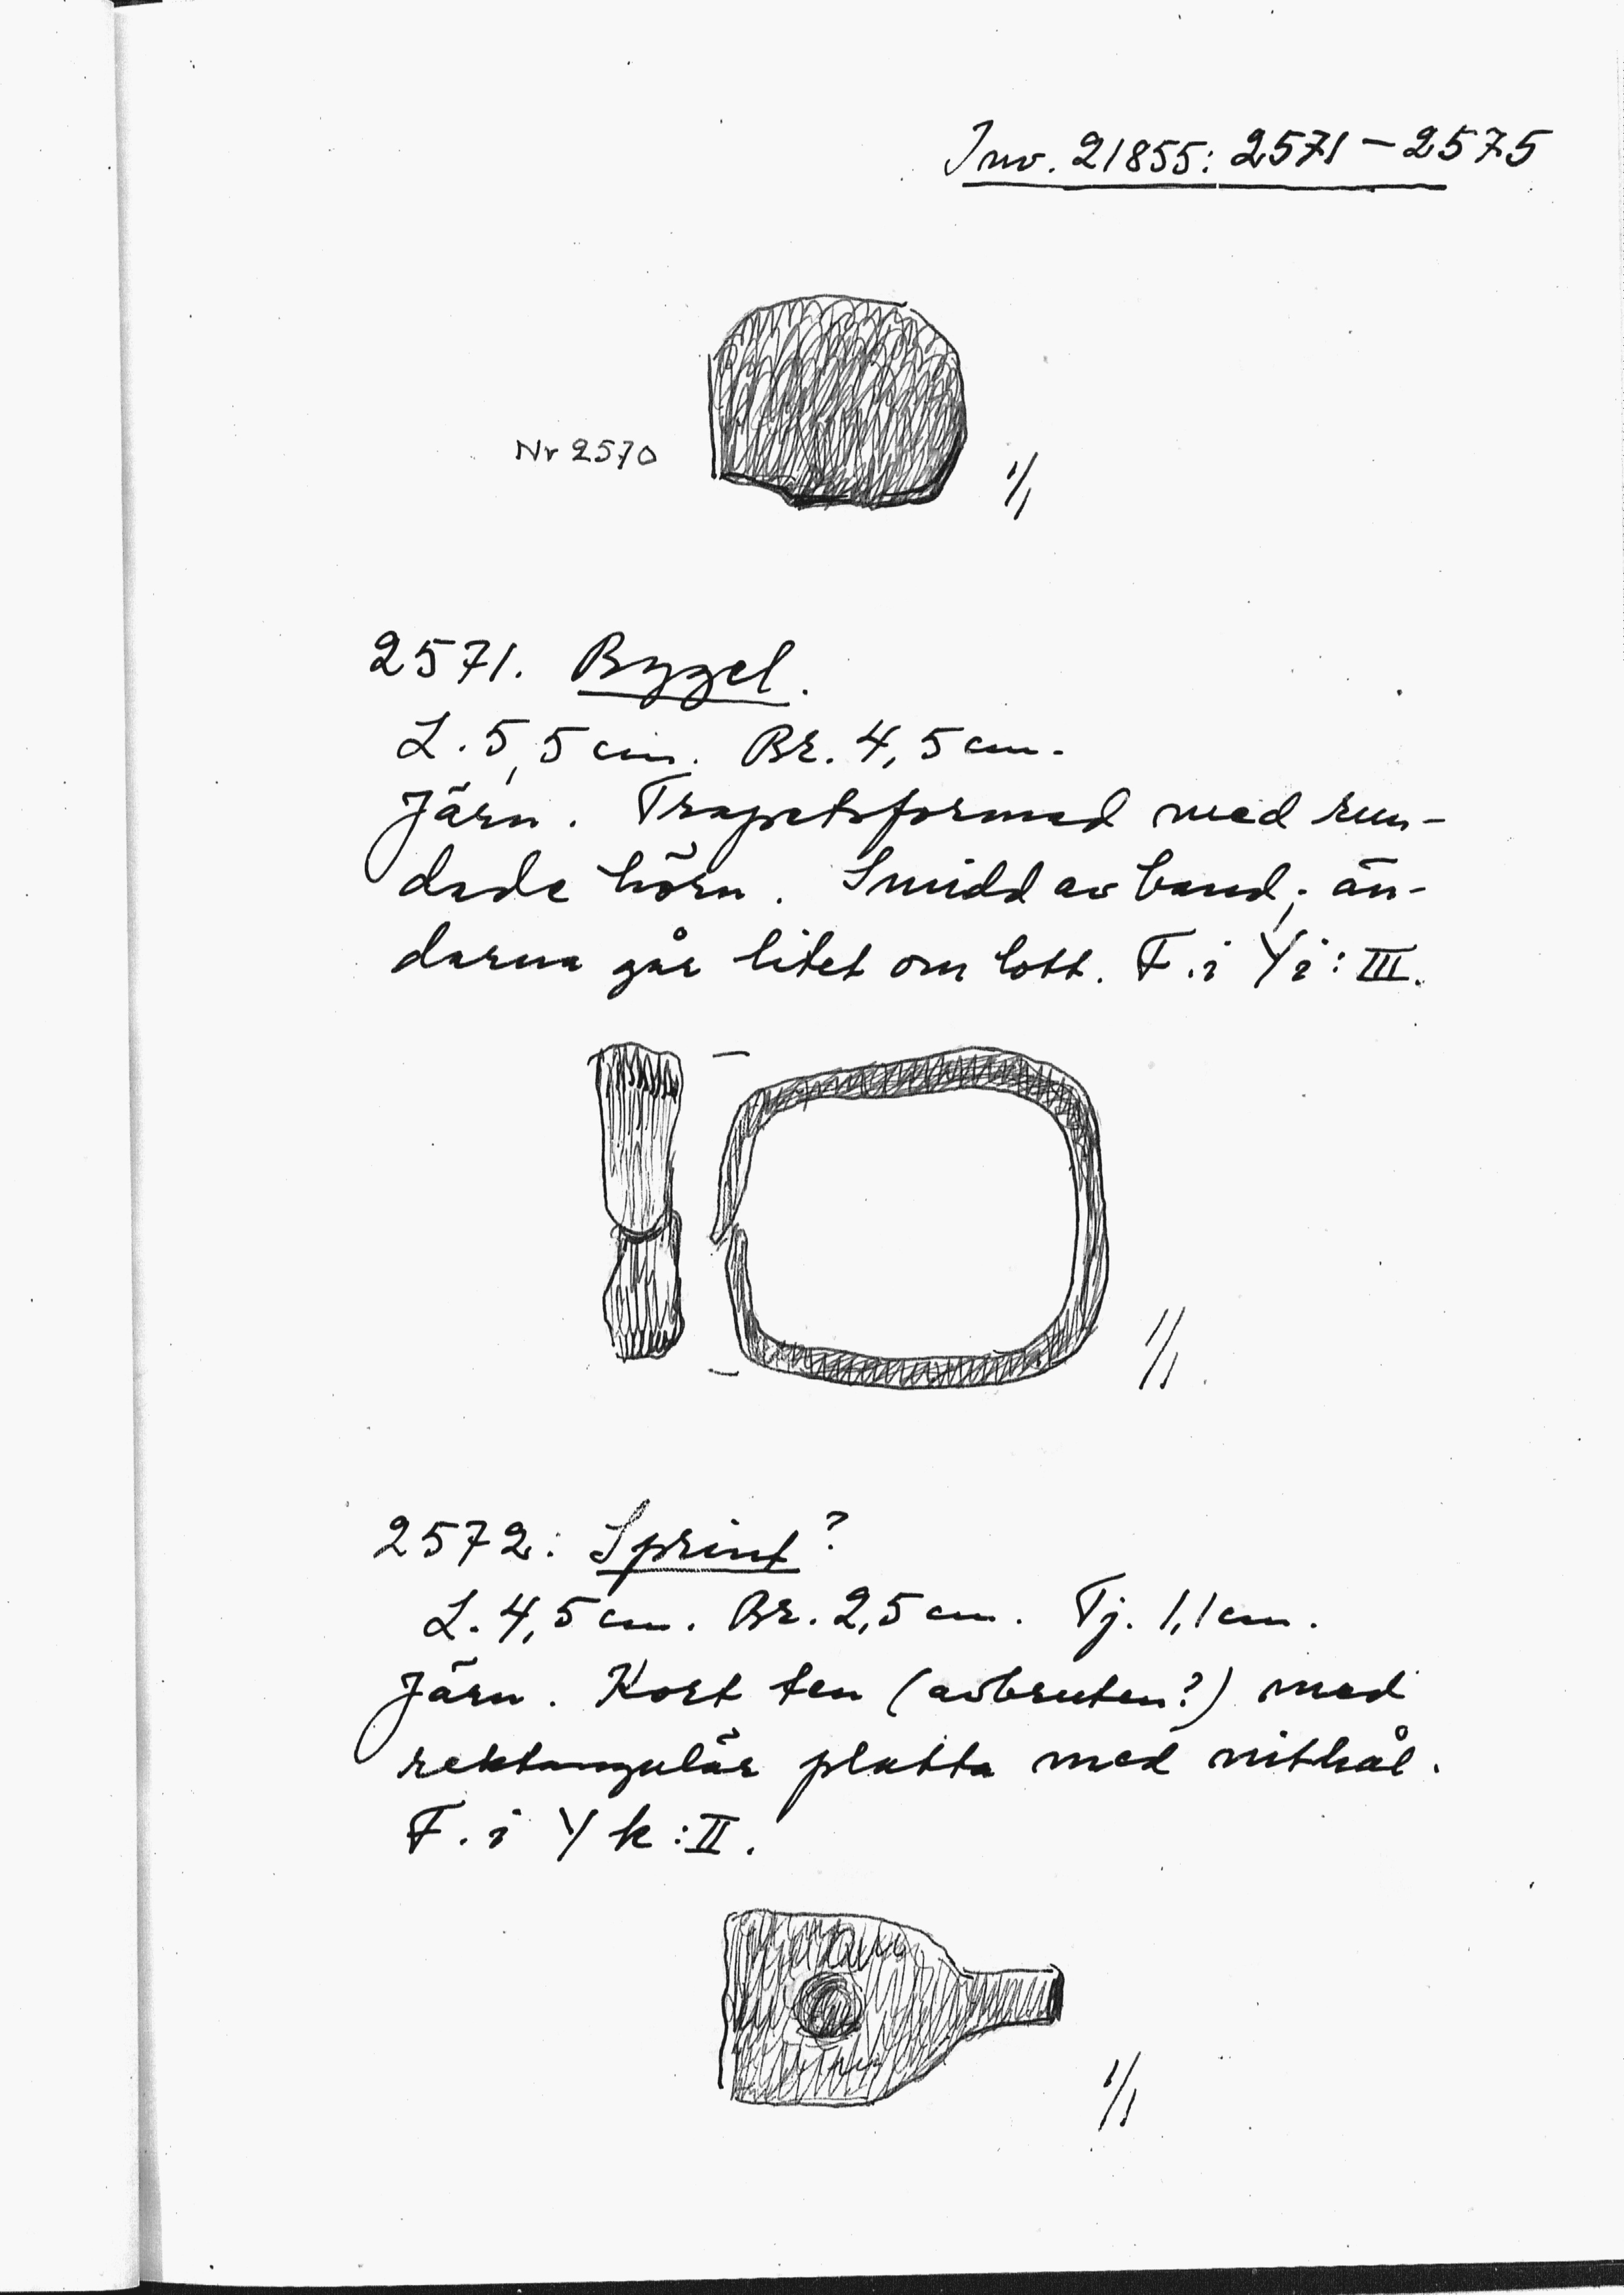 Inv. 21855: 2571 – 2575
Nr 2570
1/1
2571. Bygel.
L. 5,5 cm. Br. 4,5 cm.
Järn. Trapetsformad med run-
dade hörn. Smidd av band; än-
darna går litet om lott. F. i Y i : III.
1/1
2572: Sprint?
L. 4,5 cm. Br. 2,5 cm. Tj. 1,1 cm.
Järn. Kort ten (avbruten?) med
rektangulär platta med nithål.
F. i Y k : II.
1/1